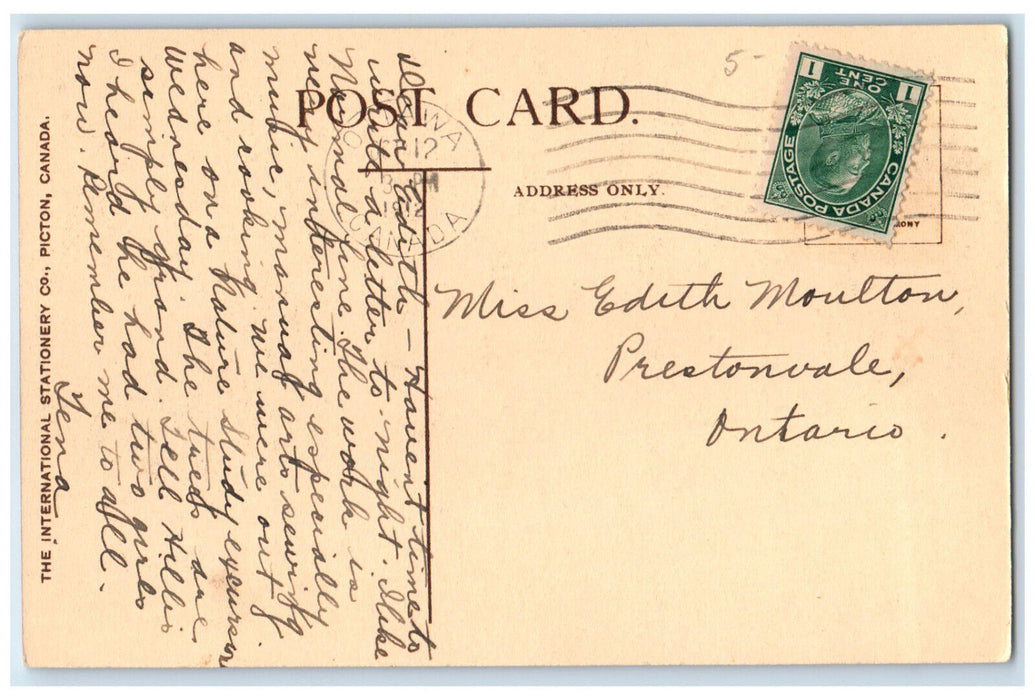 POST CARD.
ADDRESS ONLY.
5-
1 ONE CENT 1
CANADA POSTAGE
12
PM
CANADA
Miss Edith Moulton,
Prestonvale,
Ontario.
Dear Edith - Havent time to
write a letter to night. I like
Normal fine. The work is
very interesting especially
music, manual arts sewing
and cooking. We were out
here on a Nature Study excursion
Wednesday. The trees are
simply grand. Tell Hillis
I heard he had two girls
now. Remember me to all.
Tena
THE INTERNATIONAL STATIONERY CO., PICTON, CANADA.